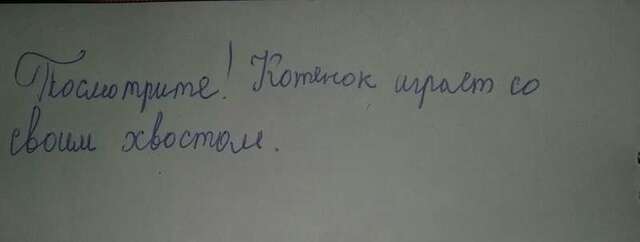 Посмотрите! Котёнок играет со
своим хвостом.